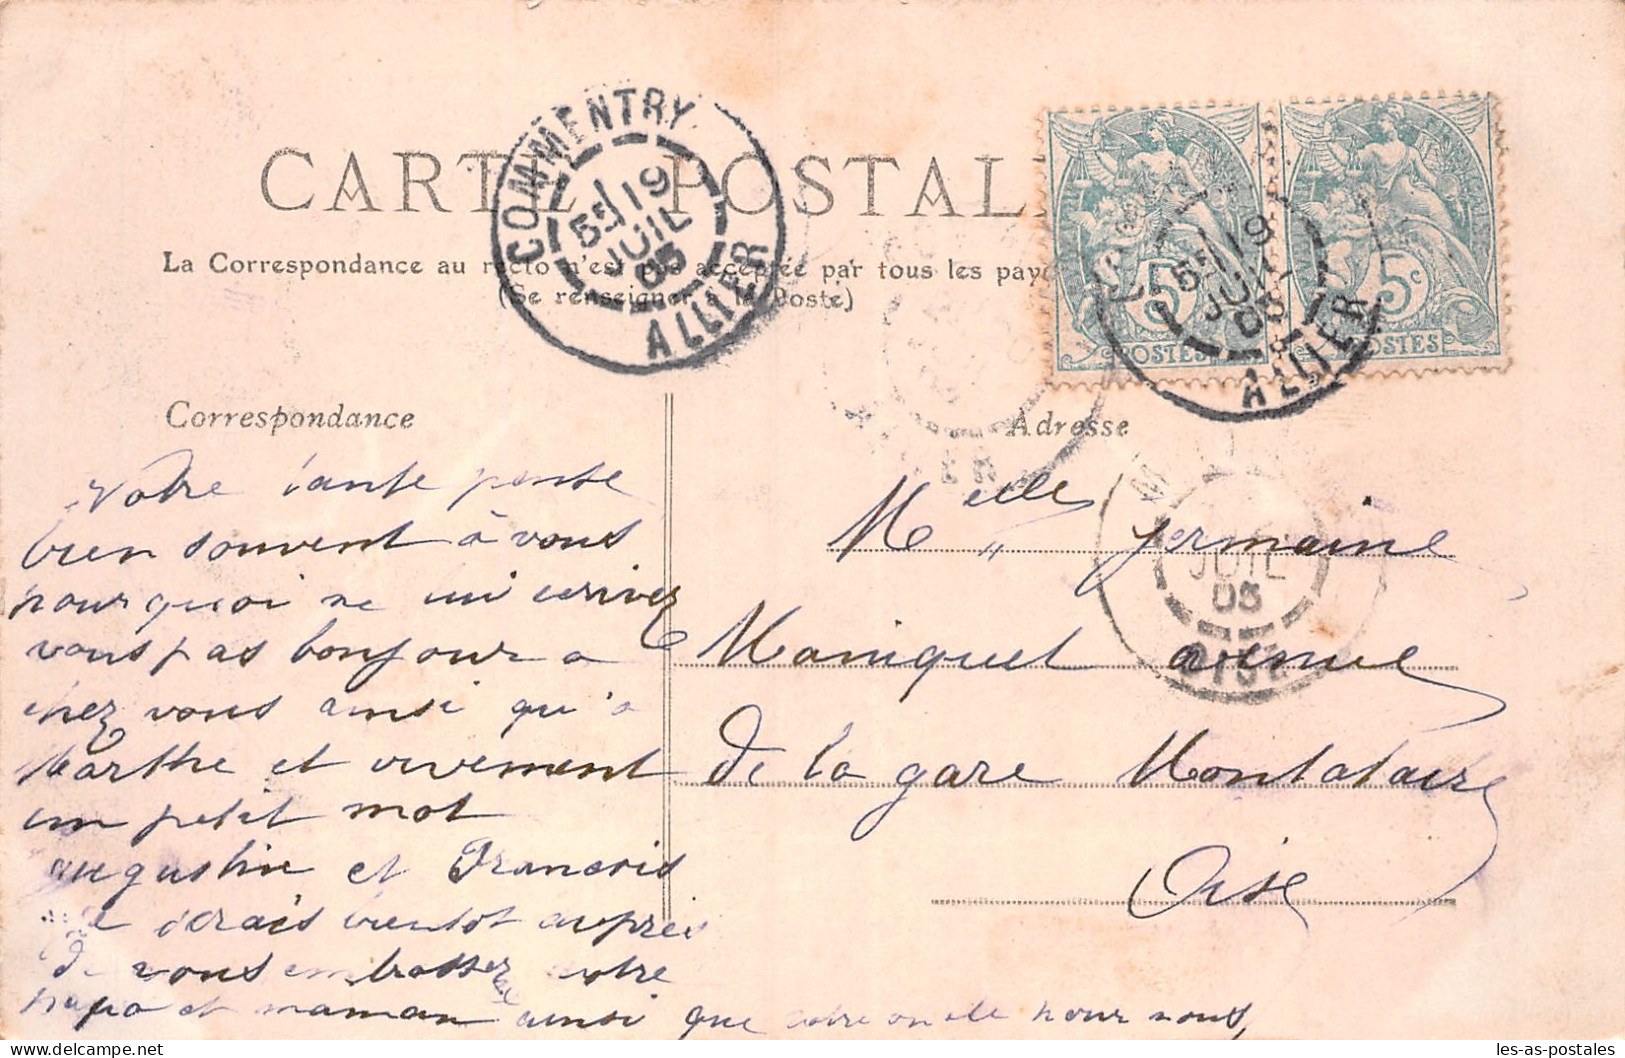 CARTE POSTALE
La Correspondance au recto n'est pas acceptée par tous les pays
(Se renseigner à la Poste)
COMMENTRY
5E 19
JUIL
05
ALLIER
5c
POSTES
5E 19
JUIL
05
ALLIER
5c
POSTES
Correspondance
Votre tante pense
bien souvent à vous
pourquoi ne lui écrivez
vous pas bonjour a
chez vous ainsi qu'a
Marthe et vivement
un petit mot
augustin et Francois
Je serais bientot auprès
de vous embrasser votre
papa et maman ainsi que votre oncle pour nous,
Adresse
Melle Germaine
Maniquet avenue
de la gare Montataire
Oise
JUIL
05
OISE
les-as-postales